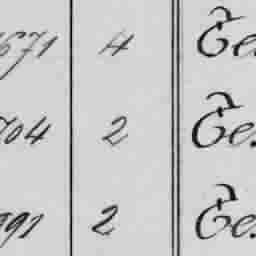 671 4 Ge.
704 2 Ge.
991 2 Ge.